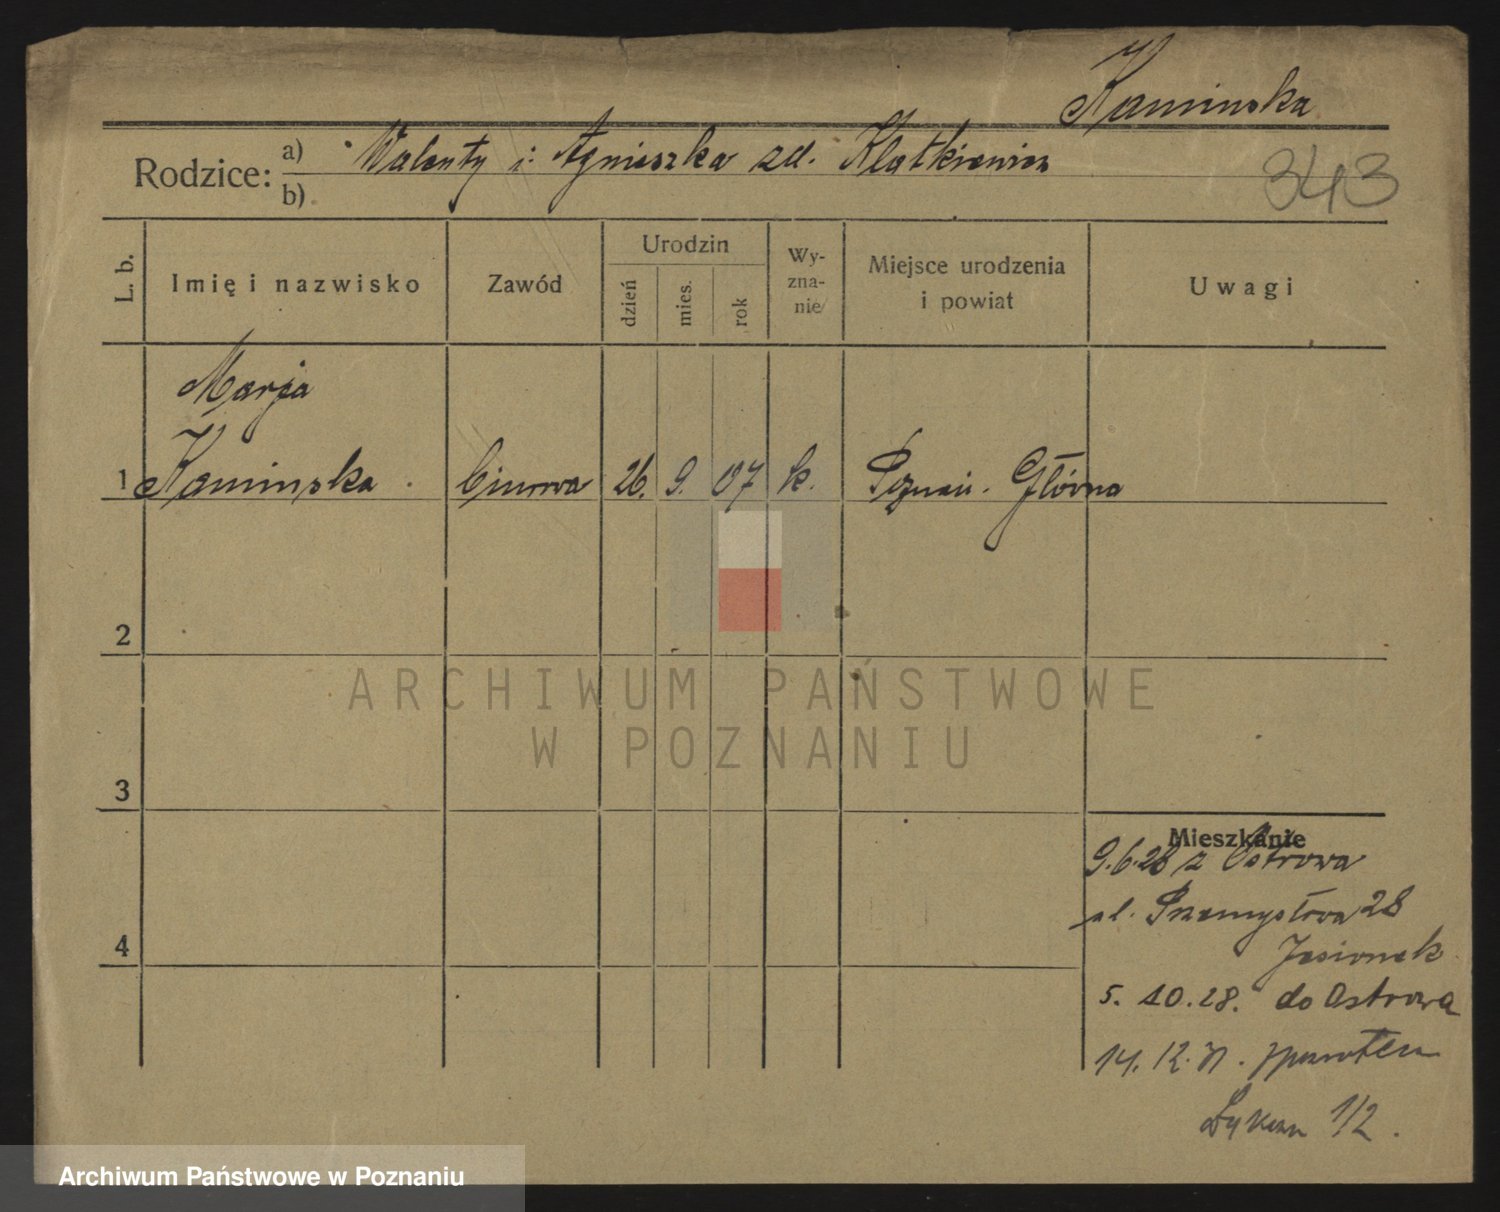 Kaminska
Rodzice: a) Walenty i Agnieszka zd. Klatkiewicz
b)
343
L. b.
Imię i nazwisko
Zawód
Urodzin
dzień
mies.
rok
Wy-
zna-
nie
Miejsce urodzenia
i powiat
Uwagi
Marja
1 Kaminska biurowa 26. 9. 07 k. Poznań - Główna
2
3
4
ARCHIWUM PAŃSTWOWE
W POZNANIU
Mieszkanie
9.6.28 z Ostrowa
ul. Przemysłowa 28
Jasionek
5. 10. 28. do Ostrowa
14. 12.
1/2.
Archiwum Państwowe w Poznaniu